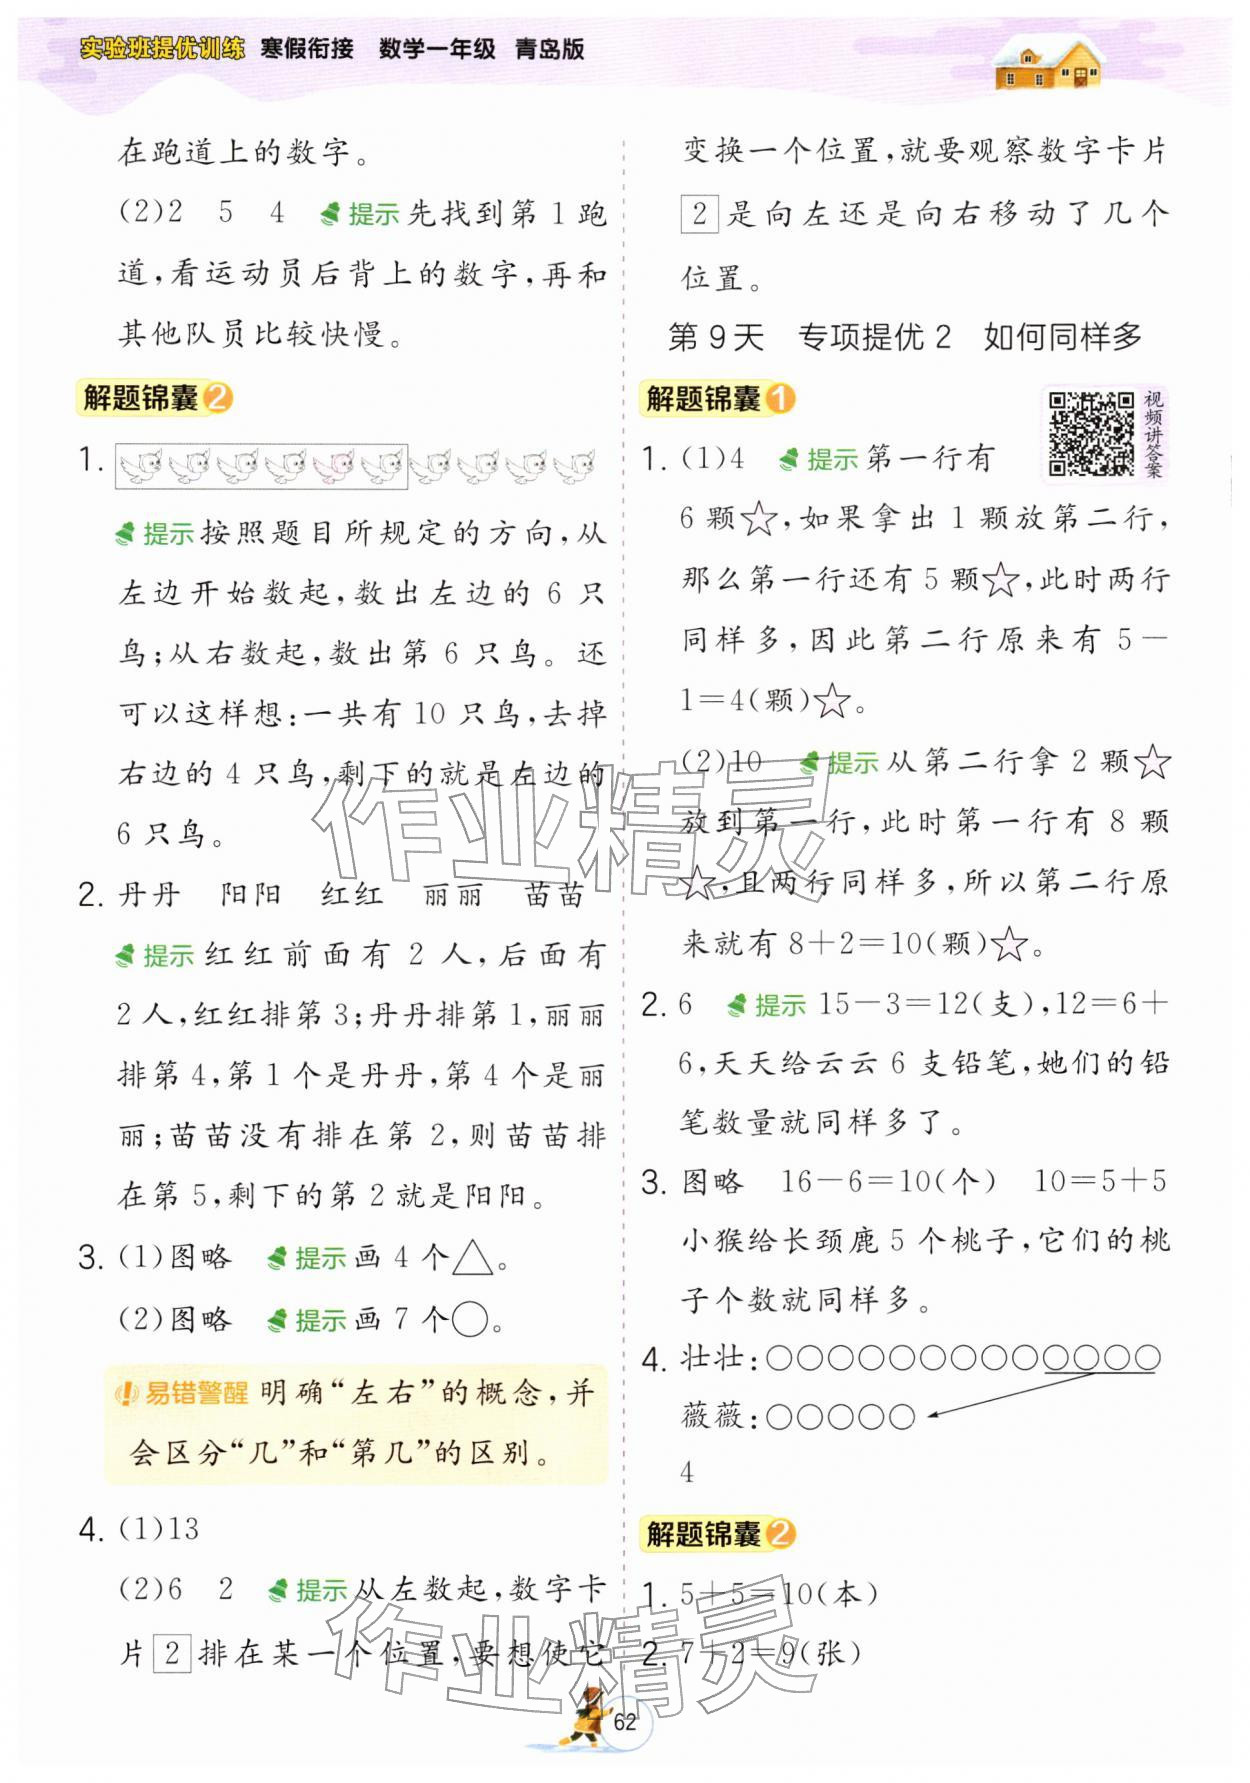 实验班提优训练 寒假衔接 数学一年级 青岛版
在跑道上的数字。
(2)2 5 4 提示 先找到第1跑
道,看运动员后背上的数字,再和
其他队员比较快慢。
解题锦囊2
1.
提示 按照题目所规定的方向,从
左边开始数起,数出左边的6只
鸟;从右数起,数出第6只鸟。还
可以这样想:一共有10只鸟,去掉
右边的4只鸟,剩下的就是左边的
6只鸟。
2. 丹丹 阳阳 红红 丽丽 苗苗
提示 红红前面有2人,后面有
2人,红红排第3;丹丹排第1,丽丽
排第4,第1个是丹丹,第4个是丽
丽;苗苗没有排在第2,则苗苗排
在第5,剩下的第2就是阳阳。
3. (1)图略 提示 画4个△。
(2)图略 提示 画7个○。
易错警醒 明确“左右”的概念,并
会区分“几”和“第几”的区别。
4. (1)13
(2)6 2 提示 从左数起,数字卡
片 2 排在某一个位置,要想使它
变换一个位置,就要观察数字卡片
2 是向左还是向右移动了几个
位置。
第9天 专项提优2 如何同样多
解题锦囊1
视频讲答案
1. (1)4 提示 第一行有
6颗☆,如果拿出1颗放第二行,
那么第一行还有5颗☆,此时两行
同样多,因此第二行原来有5-
1=4(颗)☆。
(2)10 提示 从第二行拿2颗☆
放到第一行,此时第一行有8颗
☆,且两行同样多,所以第二行原
来就有8+2=10(颗)☆。
2. 6 提示 15-3=12(支),12=6+
6,天天给云云6支铅笔,她们的铅
笔数量就同样多了。
3. 图略 16-6=10(个) 10=5+5
小猴给长颈鹿5个桃子,它们的桃
子个数就同样多。
4. 壮壮:○○○○○○○○○○○○○
薇薇:○○○○○
4
解题锦囊2
1. 5+5=10(本)
2. 7+2=9(张)
62
作业精灵
作业精灵